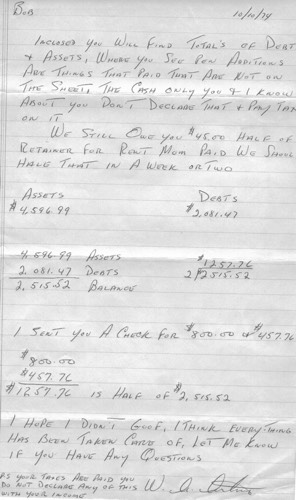 BOB 10/10/74
INCLOSED YOU WILL FIND TOTAL'S OF DEBT
& ASSETS, WHERE YOU SEE PEN ADDITIONS
ARE THINGS THAT PAID THAT ARE NOT ON
THE SHEETS THE CASH ONLY YOU & I KNOW
ABOUT YOU DON'T DECLARE THAT & PAY TAX
ON IT
WE STILL OWE YOU $45.00 HALF OF
RETAINER FOR RENT MOM PAID WE SHOULD
HAVE THAT IN A WEEK OR TWO
ASSETS DEBTS
$4,596.99 $2,081.47
4,596.99 ASSETS $1257.76
2,081.47 DEBTS 2|2515.52
2,515.52 BALANCE
I SENT YOU A CHECK FOR $800.00 & $457.76
$800.00
$457.76
$1257.76 IS HALF OF $2,515.52
I HOPE I DIDN'T GOOF, I THINK EVERY-THING
HAS BEEN TAKEN CARE OF, LET ME KNOW
IF YOU HAVE ANY QUESTIONS
PS YOUR TAXES ARE PAID YOU
DO NOT DECLARE ANY OF THIS W. A.
WITH YOUR INCOME